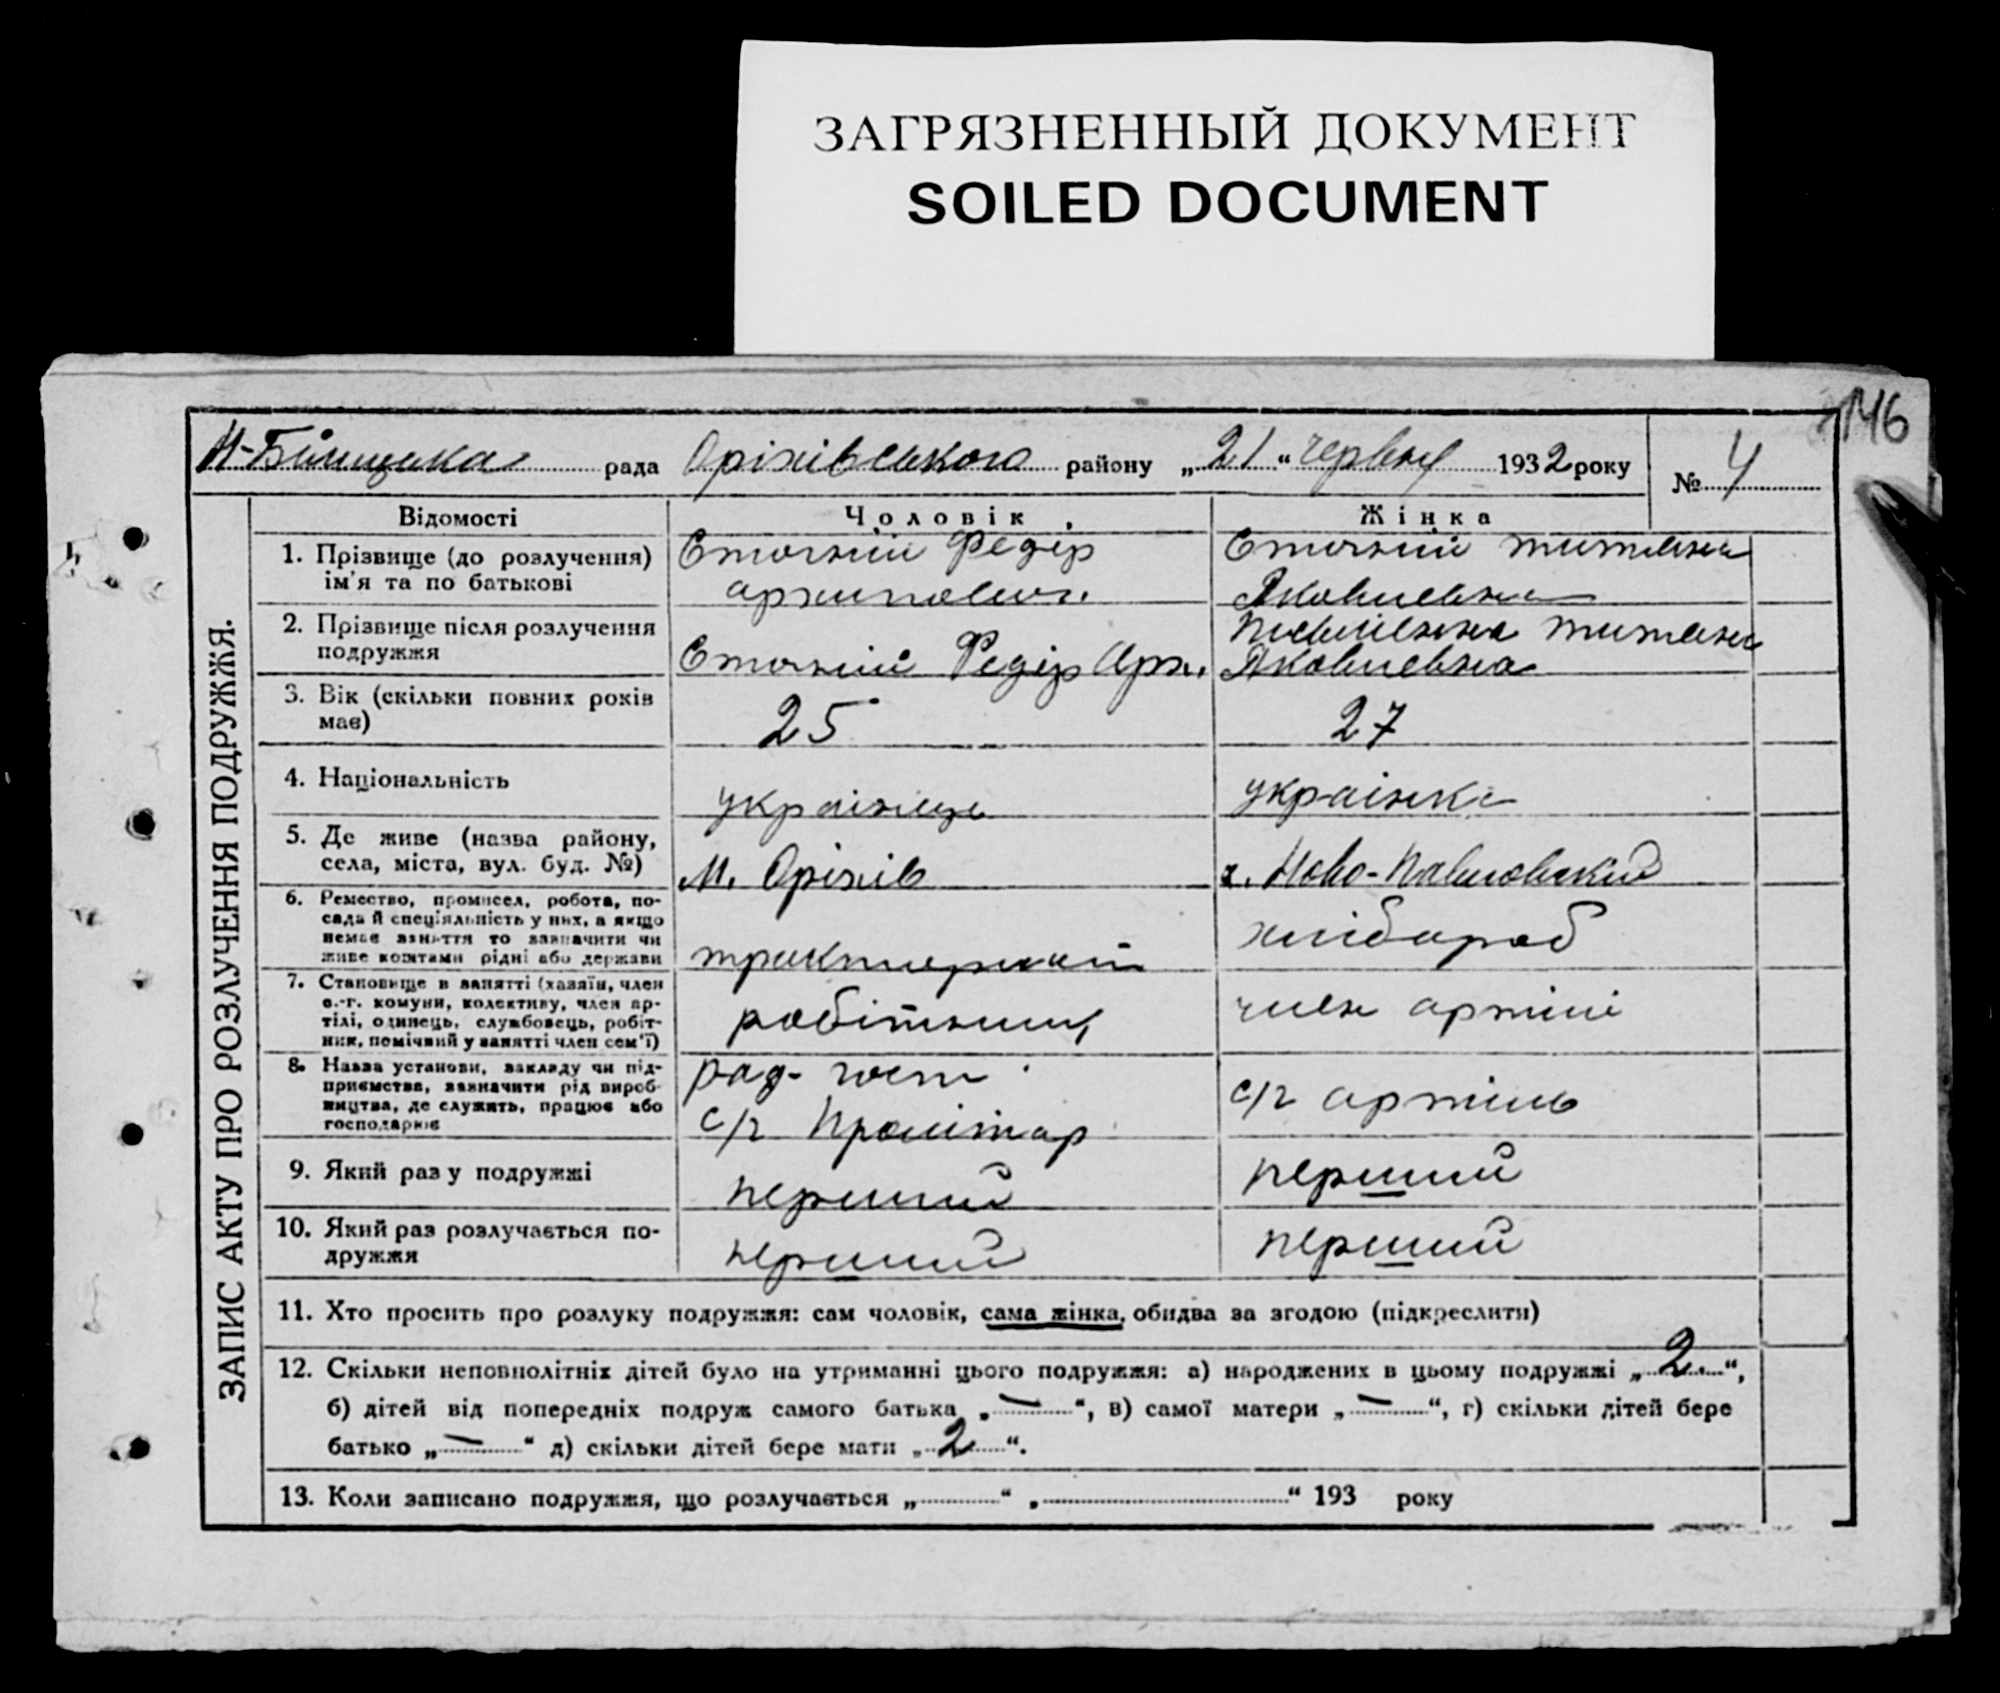 ЗАГРЯЗНЕННЫЙ ДОКУМЕНТ
SOILED DOCUMENT
146
рада Оріхівського району „21“ червня 1932 року
№ 4
ЗАПИС АКТУ ПРО РОЗЛУЧЕННЯ ПОДРУЖЖЯ.
Відомості Чоловік Жінка
1. Прізвище (до розлучення) ім'я та по батькові
Федір
Архипович
Яковлевна
2. Прізвище після розлучення подружжя
Федір Арх.
Яковлевна
3. Вік (скільки повних років має)
25
27
4. Національність
українець
українка
5. Де живе (назва району, села, міста, вул. буд. №)
м. Оріхів
х. Ново-Павловский
6. Ремество, промисел, робота, посада й спеціяльність у них, а якщо немає заняття то зазначити чи живе коштами рідні або держави
тракторист
хлібароб
7. Становище в занятті (хазяїн, член с.-г. комуни, колективу, член артілі, одинець, службовець, робітник, помічний у занятті член сем'ї)
робітник
член артілі
8. Назва установи, закладу чи підприємства, зазначити рід виробництва, де служить, працює або господарює
рад- госп
с/г Пролітар
с/г артіль
9. Який раз у подружжі
перший
перший
10. Який раз розлучається подружжя
перший
перший
11. Хто просить про розлуку подружжя: сам чоловік, сама жінка, обидва за згодою (підкреслити)
12. Скільки неповнолітніх дітей було на утриманні цього подружжя: а) народжених в цьому подружжі „2.“,
б) дітей від попередніх подруж самого батька „—“, в) самої матери „—“, г) скільки дітей бере
батько „—“ д) скільки дітей бере мати „2“.
13. Коли записано подружжя, що розлучається „ “ „ “ 193 року